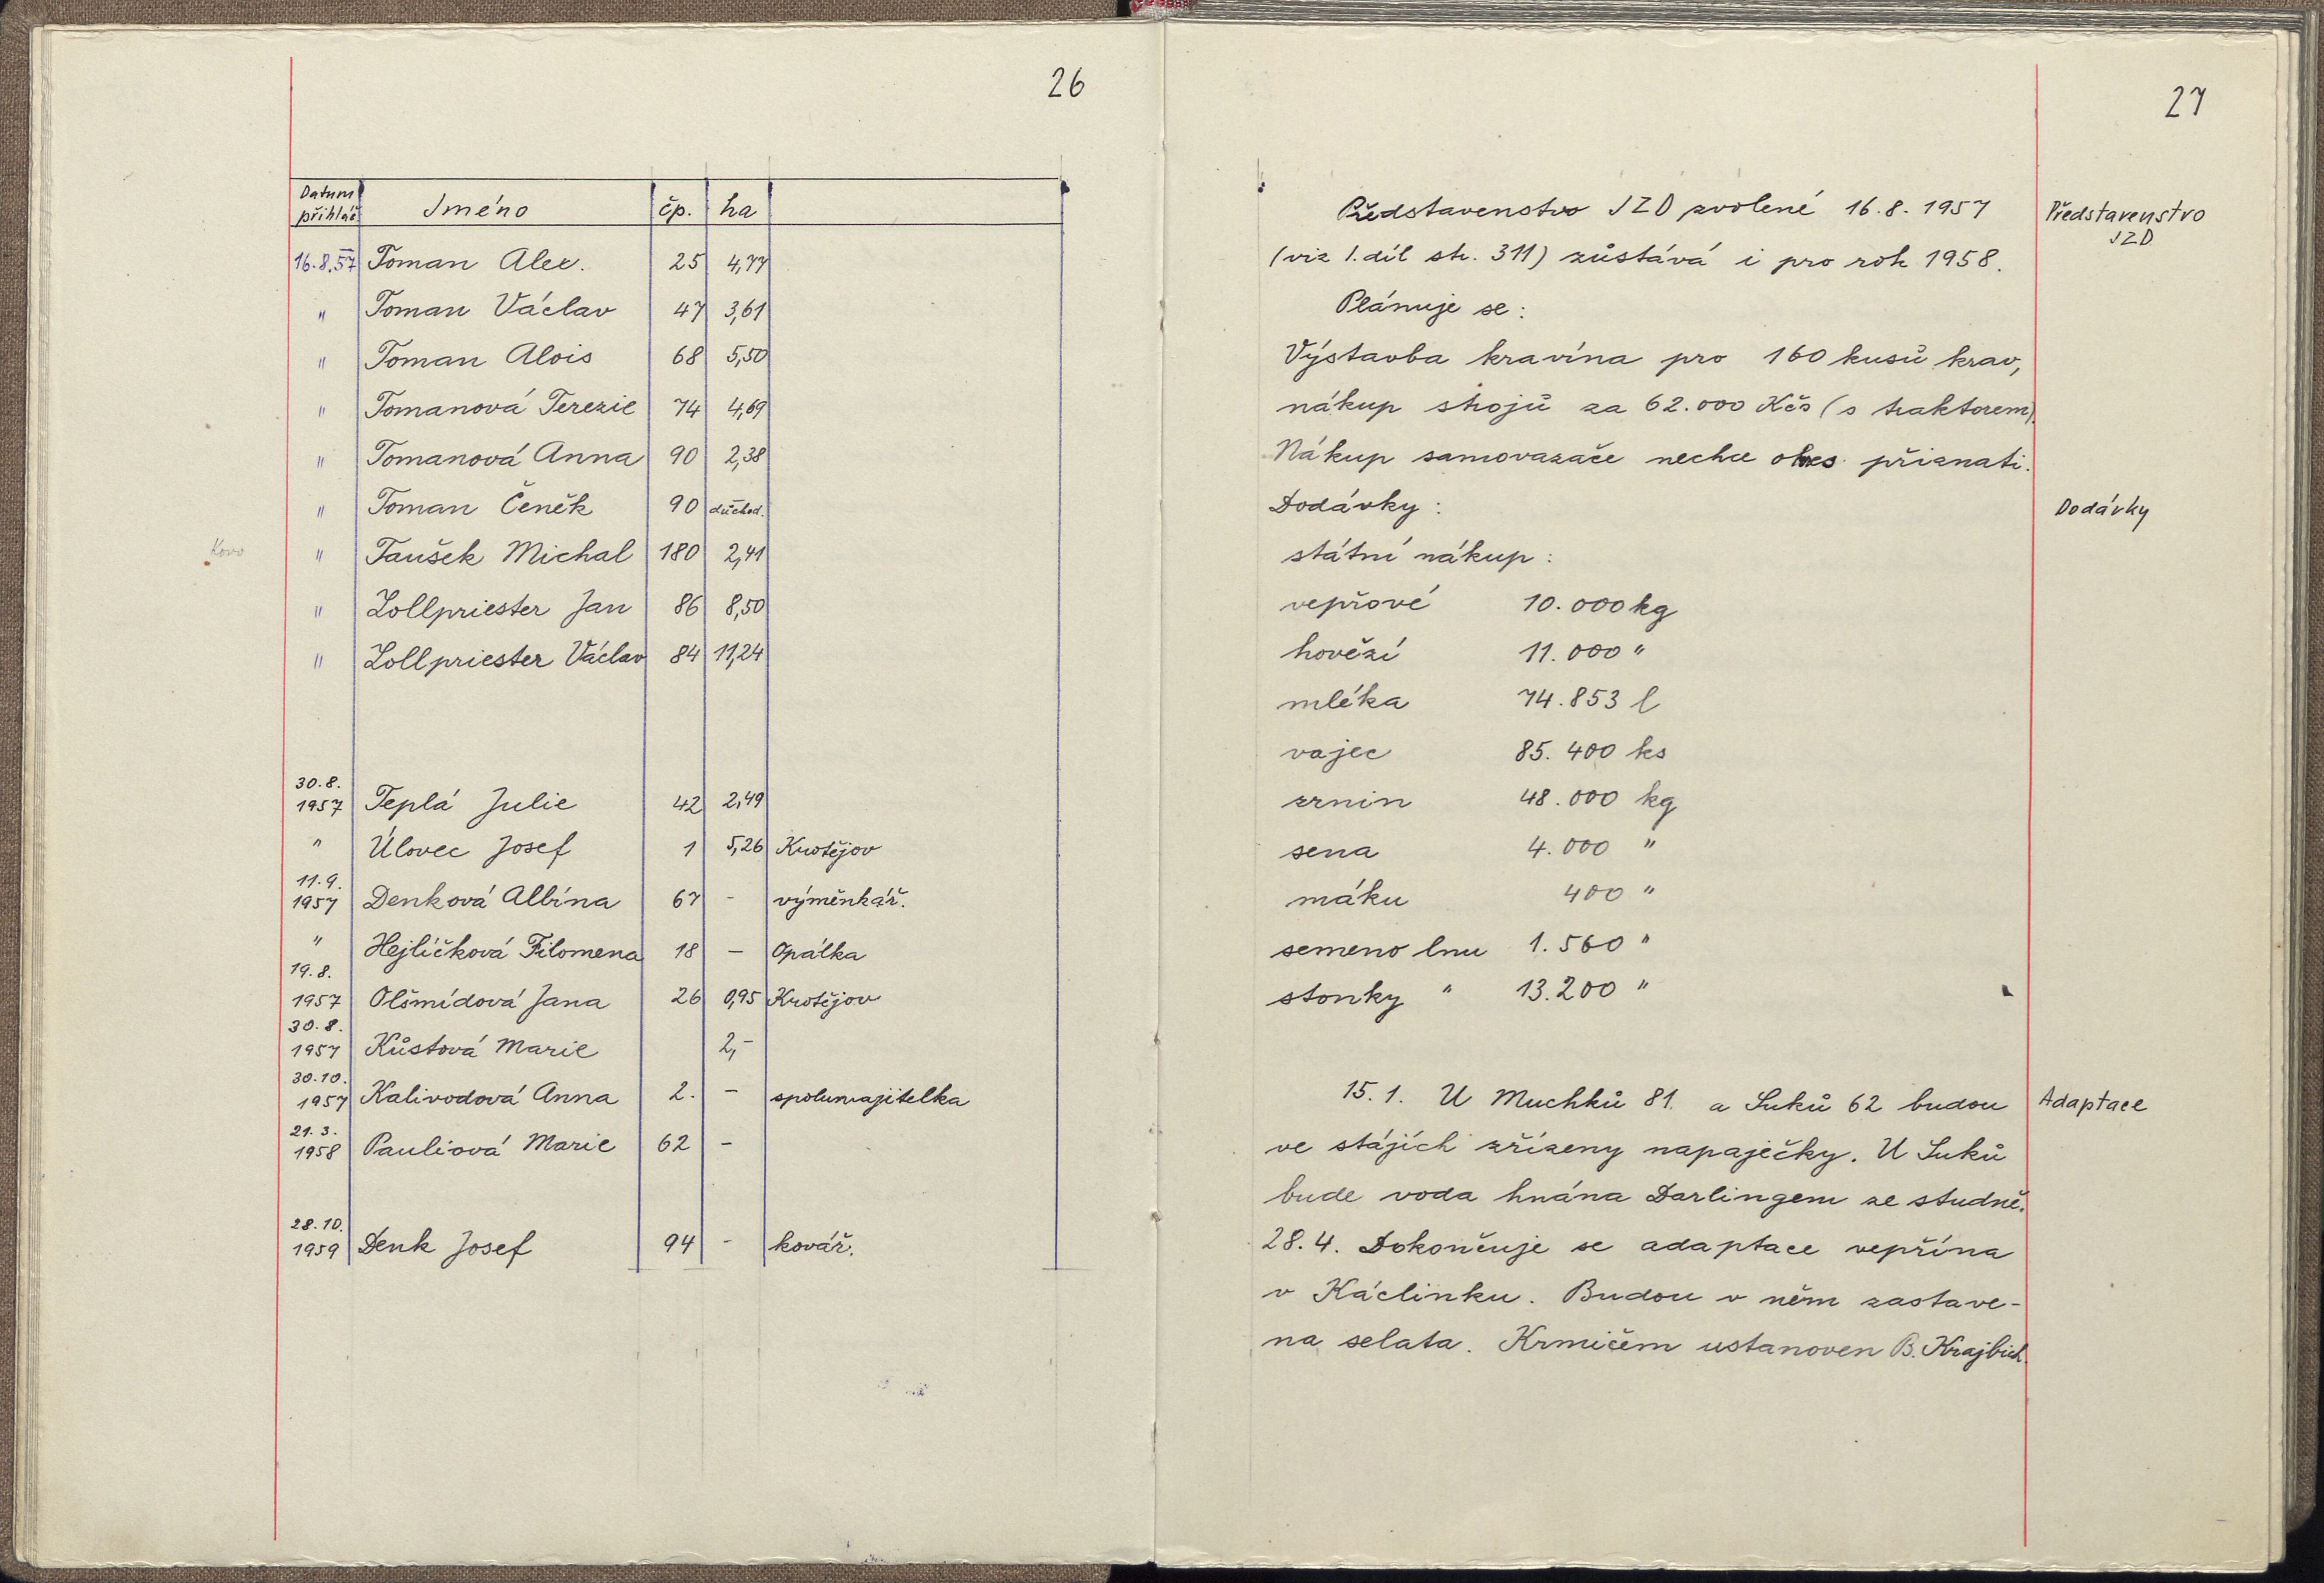 26
Datum přihláš. Jméno čp. ha
16.8.57 Toman Alec. 25 4,77
" Toman Václav 47 3,61
" Toman Alois 68 5,50
" Tomanová Terezie 74 4,69
" Tomanová Anna 90 2,38
" Toman Čeněk 90 důchod.
Kovo " Taušek Michal 180 2,41
" Zollpriester Jan 86 8,50
" Zollpriester Václav 84 11,24
30.8.
1957 Teplá Julie 42 2,49
" Úlovec Josef 1 5,26 Krotějov
11.9.
1957 Denková Albína 67 - výměnkář.
" Hejlíčková Filomena 18 - Opálka
19.8.
1957 Olšmídová Jana 26 0,95 Krotějov
30.8.
1957 Kůstová Marie 2,-
30.10.
1957 Kalivodová Anna 2. - spolumajitelka
21.3.
1958 Pauliová Marie 62 -
28.10.
1959 Denk Josef 94 - kovář.
27
Představenstvo JZD zvolené 16.8.1957
Představenstvo
JZD
(viz 1. díl str. 311) zůstává i pro rok 1958.
Plánuje se:
Výstavba kravína pro 160 kusů krav,
nákup strojů za 62.000 Kčs (s traktorem).
Nákup samovazače nechce okres přiznati.
Dodávky:
Dodávky
státní nákup:
vepřové 10.000 kg
hovězí 11.000 "
mléka 74.853 l
vajec 85.400 ks
zrnin 48.000 kg
sena 4.000 "
máku 400 "
semeno lnu 1.560 "
stonky " 13.200 "
15.1. U Muchků 81. a Suků 62 budou
Adaptace
ve stájích zřízeny napaječky. U Suků
bude voda hnána Darlingem ze studně.
28.4. Dokončuje se adaptace vepřína
v Káclinku. Budou v něm zastave-
na selata. Krmičem ustanoven B. Krajbich.